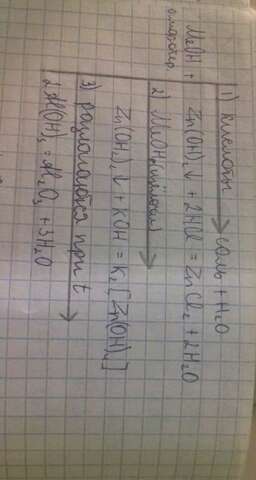 MeOH + 1) кислоты → соль + H2O
амфотер.
Zn(OH)2↓ + 2HCl = ZnCl2 + 2H2O
2) MeOH (щёлочи) →
Zn(OH)2↓ + KOH = K2[Zn(OH)4]
3) разлагаются при t →
2Al(OH)3 = Al2O3 + 3H2O